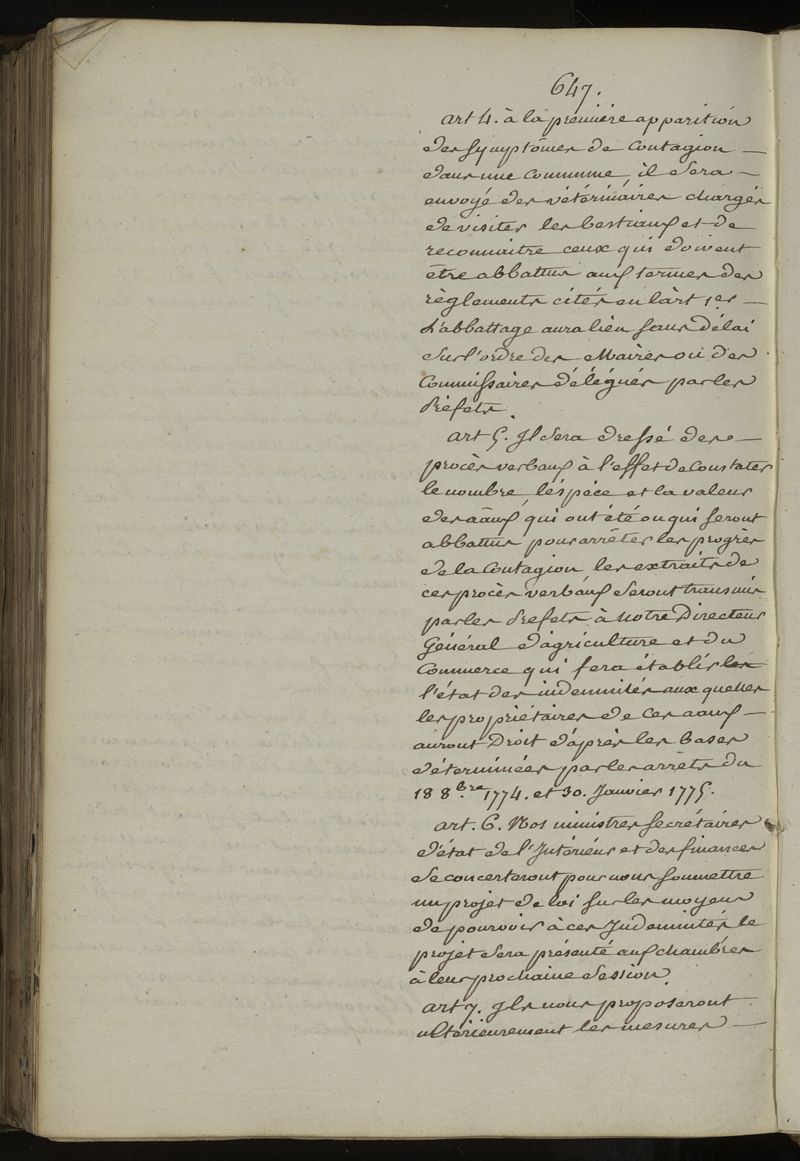 647.
art 4. à la première apparition
des symptômes de Contagion —
dans une Commune, il sera —
envoyé des vétérinaires chargés
de visiter les bestiaux et de
reconnaitre ceux qui doivent
être abbattus aux termes des
règlements cités en l'art 1er —
L'abbattage aura lieu sans délai
sur l'ordre des Maires ou des
Commissaires délégués par les
Préfets.
art 5. Il sera dressé des —
procès verbaux à l'effet de Constater
le nombre, l'éspèce et la valeur
des aâux qui ont été ou qui seront
abbattus pour arrêter les progrès
de la Contagion les extraits de
ces procès verbaux seront transmis
par les Prefets à notre Directeur
Général d'agriculture et du
Commerce qui fera établir les
l'état des indemnités aux quelles
les propriétaires de Ces aaux —
auront Droit d'après les bases
déterminées par les arrêts du
18 8bre 1774. et 30. Janvier 1775.
art. 6. Nos ministres secrétaires
d'état de l'Intérieur et des finances
se concerteront pour nous soumettre
un projet de loi sur les moyens
de pourvoir à ces Indemnités le
projet sera présenté aux chambres
à leur prochaine Session.
art 7. Ils nous proposeront
ultérieurement les mesures —